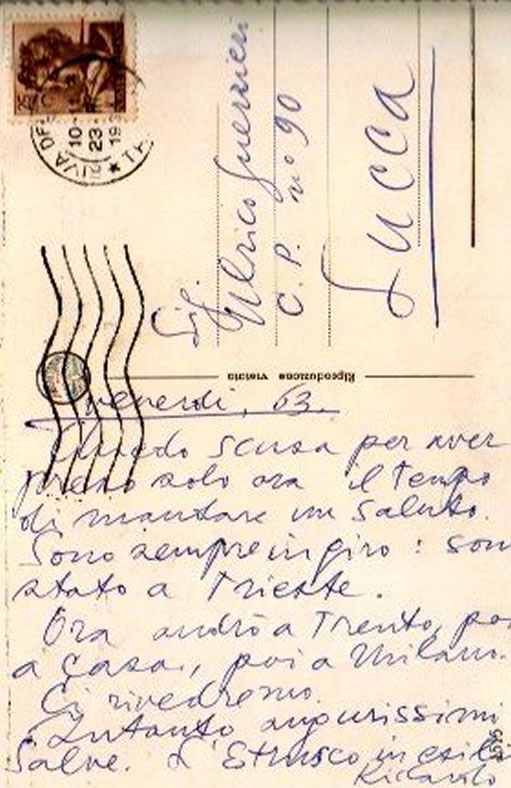 RIVA DEL
10-11
23
19
Sig. Ulrico Guerrieri
C. P. n° 90
Lucca
Riproduzione vietata
venerdì, 63.
Chiedo scusa per aver
preso solo ora il tempo
di mandare un saluto.
Sono sempre in giro : son
stato a Trieste.
Ora andrò a Trento, poi
a casa, poi a Milano.
Ci rivedremo.
Intanto augurissimi
Salve. L'Etrusco in esilio
Riccardo